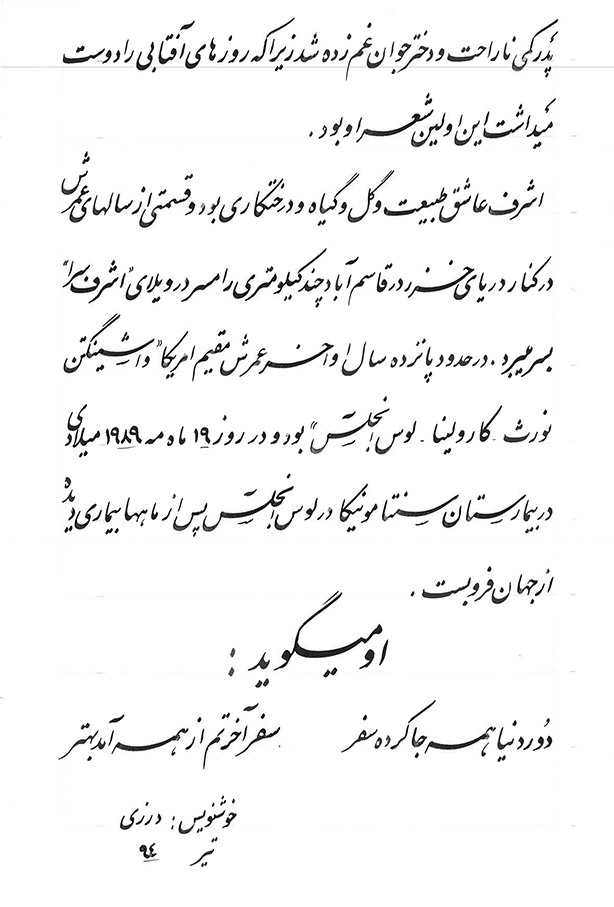 پدر کمی ناراحت و دختر جوان غم زده شد زیرا که روزهای آفتابی را دوست
میداشت این اولین شعر او بود .
اشرف عاشق طبیعت و گل و گیاه و درختکاری بود و قسمتی از سالهای عمرش
در کنار دریای خزر در قاسم آباد چند کیلومتری رامسر در ویلای "اشرف سرا"
بسر میبرد . در حدود پانزده سال اواخر عمرش مقیم امریکا "واشینگتن
نورث کارولینا . لوس انجلس" بود و در روز ۱۹ ماه مه ۱۹۸۹ میلادی
در بیمارستان سنتا مونیکا در لوس انجلس پس از ماهها بیماری دیده
از جهان فرو بست .
او میگوید :
دور دنیا همه جا کرده سفر سفر آخرتم از همه آمد بهتر
خوشنویس : درزی
تیر ۹۴